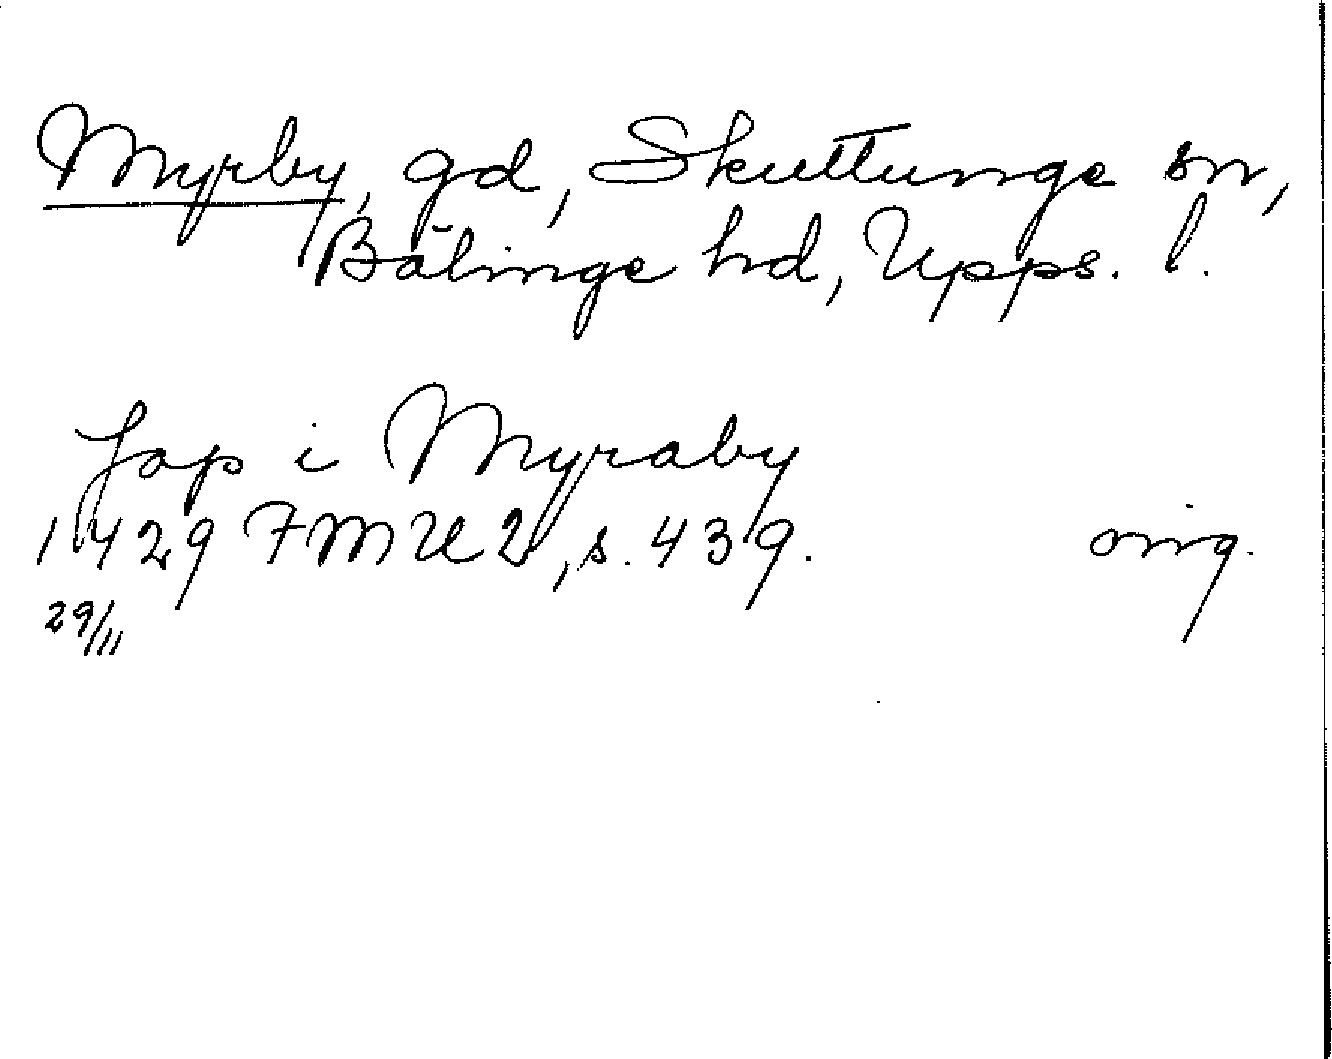 Myrby, gd, Skuttunge sn,
Bälinge hd, Upps. l.
Jop i Myraby
1429 FMU 2, s. 439. orig.
29/11